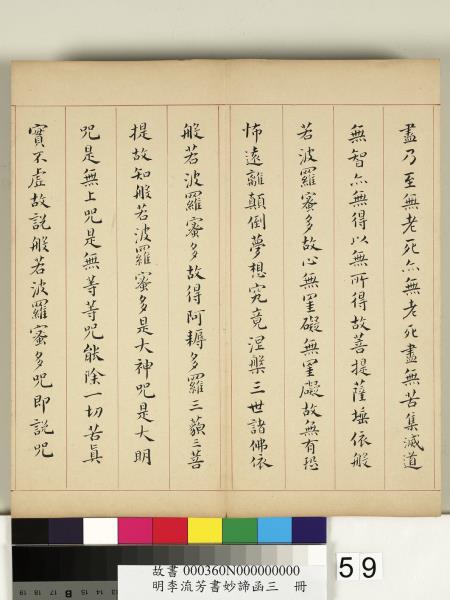 盡乃至無老死亦無老死盡無苦集滅道
無智亦無得以無所得故菩提薩埵依般
若波羅蜜多故心無罣礙無罣礙故無有恐
怖遠離顛倒夢想究竟涅槃三世諸佛依
般若波羅蜜多故得阿耨多羅三藐三菩
提故知般若波羅蜜多是大神咒是大明
咒是無上咒是無等等咒能除一切苦真
實不虛故說般若波羅蜜多咒即說咒
故書 000360N000000000
明李流芳書妙諦函三 冊
59